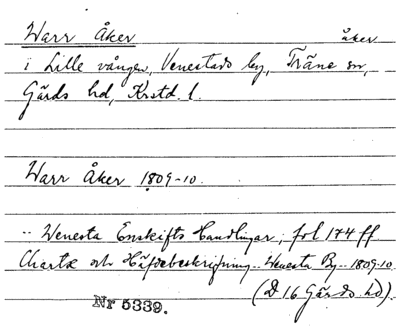 Warr Åker åker
i Lille vången, Venestads by, Träne sn,
Gärds hd, Krstd. l.
Warr Åker 1809-10.
.. Wenesta Enskifts Handlingar, fol 174 ff
Charta och Häfdebeskrifning .. Wenesta By .. 1809-10
(D 16 Gärds hd).
Nr 5339.